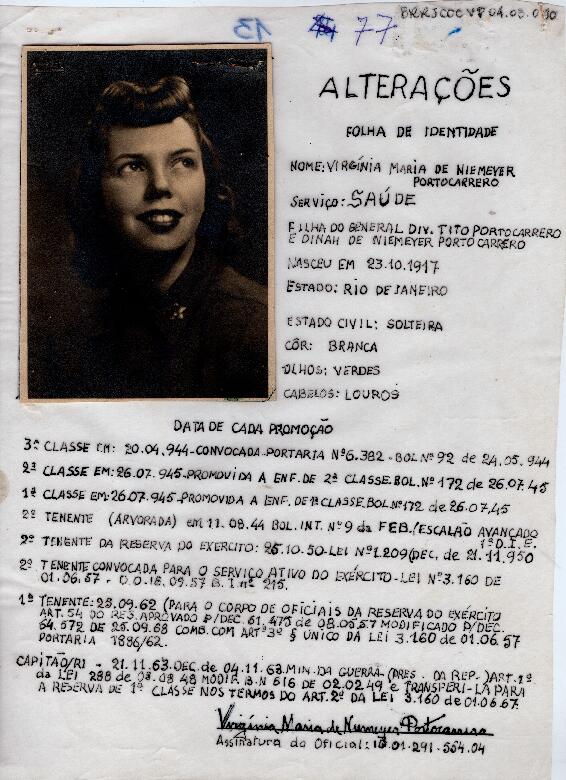 BRRJCOC VP 04.03.0
13 77
ALTERAÇÕES
FOLHA DE IDENTIDADE
NOME: VIRGÍNIA MARIA DE NIEMEYER
PORTOCARRERO
SERVIÇO: SAÚDE
FILHA DO GENERAL DIV. TITO PORTOCARRERO
E DINAH DE NIEMEYER PORTOCARRERO
NASCEU EM 23.10.1917
ESTADO: RIO DE JANEIRO
ESTADO CIVIL: SOLTEIRA
CÔR: BRANCA
OLHOS: VERDES
CABELOS: LOUROS
DATA DE CADA PROMOÇÃO
3ª CLASSE EM: 20.04.944-CONVOCADA-PORTARIA Nº6.382-BOL Nº 92 de 24.05.944
2ª CLASSE EM: 26.07.945-PROMOVIDA A ENF. DE 2ª CLASSE. BOL. Nº 172 de 26.07.45
1ª CLASSE EM: 26.07.945-PROMOVIDA A ENF. DE 1ª CLASSE. BOL Nº 172 de 26.07.45
2º TENENTE (ARVORADA) em 11.08.44 BOL. INT. Nº 9 da FEB./ESCALÃO AVANÇADO
1ª D.I.E.
2º TENENTE DA RESERVA DO EXERCITO: 25.10.50-LEI Nº 1.209 (DEC. de 21.11.950
2º TENENTE CONVOCADA PARA O SERVIÇO ATIVO DO EXÉRCITO-LEI Nº 3.160 DE
01.06.57 - D.O. 18.09.57 B.I nº 215.
1º TENENTE: 25.09.62 (PARA O CORPO DE OFICIAIS DA RESERVA DO EXÉRCITO
ART. 54 DO APROVADO P/DEC. 61.475 de 08.05.57 MODIFICADO P/DEC.
64.572 DE 25.09.68 COMB. COM ART º 3º § ÚNICO DA LEI 3.160 de 01.06.57
PORTARIA 1886/62.
CAPITÃO/R1 - 21.11.63 DEC. de 04.11.63 MIN. DA GUERRA (PRES. DA REP.) ART. 1º
da LEI 288 de 08.06.48 616 DE 02.02.49 e TRANSFERI-LA PARA
A RESERVA DE 1ª CLASSE NOS TERMOS DO ART. 2º DA LEI 3.160 de 01.06.57.
Virgínia Maria de Niemeyer Portocarrero
Assinatura do Oficial: 10.01-291-554.04